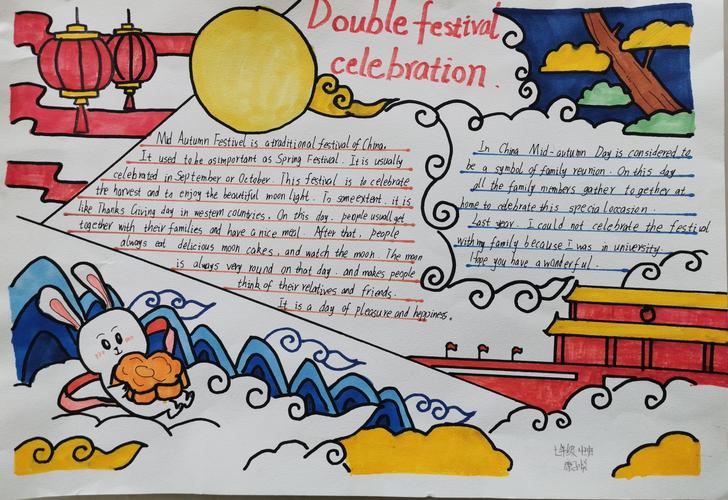 Double festival
celebration.
Mid Autumn Festivel is a traditional festival of China.
It used to be as important as Spring Festival. It is usually
celebrated in September or October. This festival is to celebrate
the harvest and to enjoy the beautiful moon light. To some extent, it is
like Thanks Giving day in western countries. On this day, people usually get
together with their families and have a nice meal. After that, people
always eat delicious moon cakes, and watch the moon. The moon
is always very round on that day, and makes people
think of their relatives and friends.
It is a day of pleasure and happiness.
In China Mid-autumn Day is considered to
be a symbol of family reunion. On this day
all the family members gather together at
home to celebrate this special occasion.
Last year, I could not celebrate the festival
with my family because I was in university.
Hope you have a wonderful.
七年级